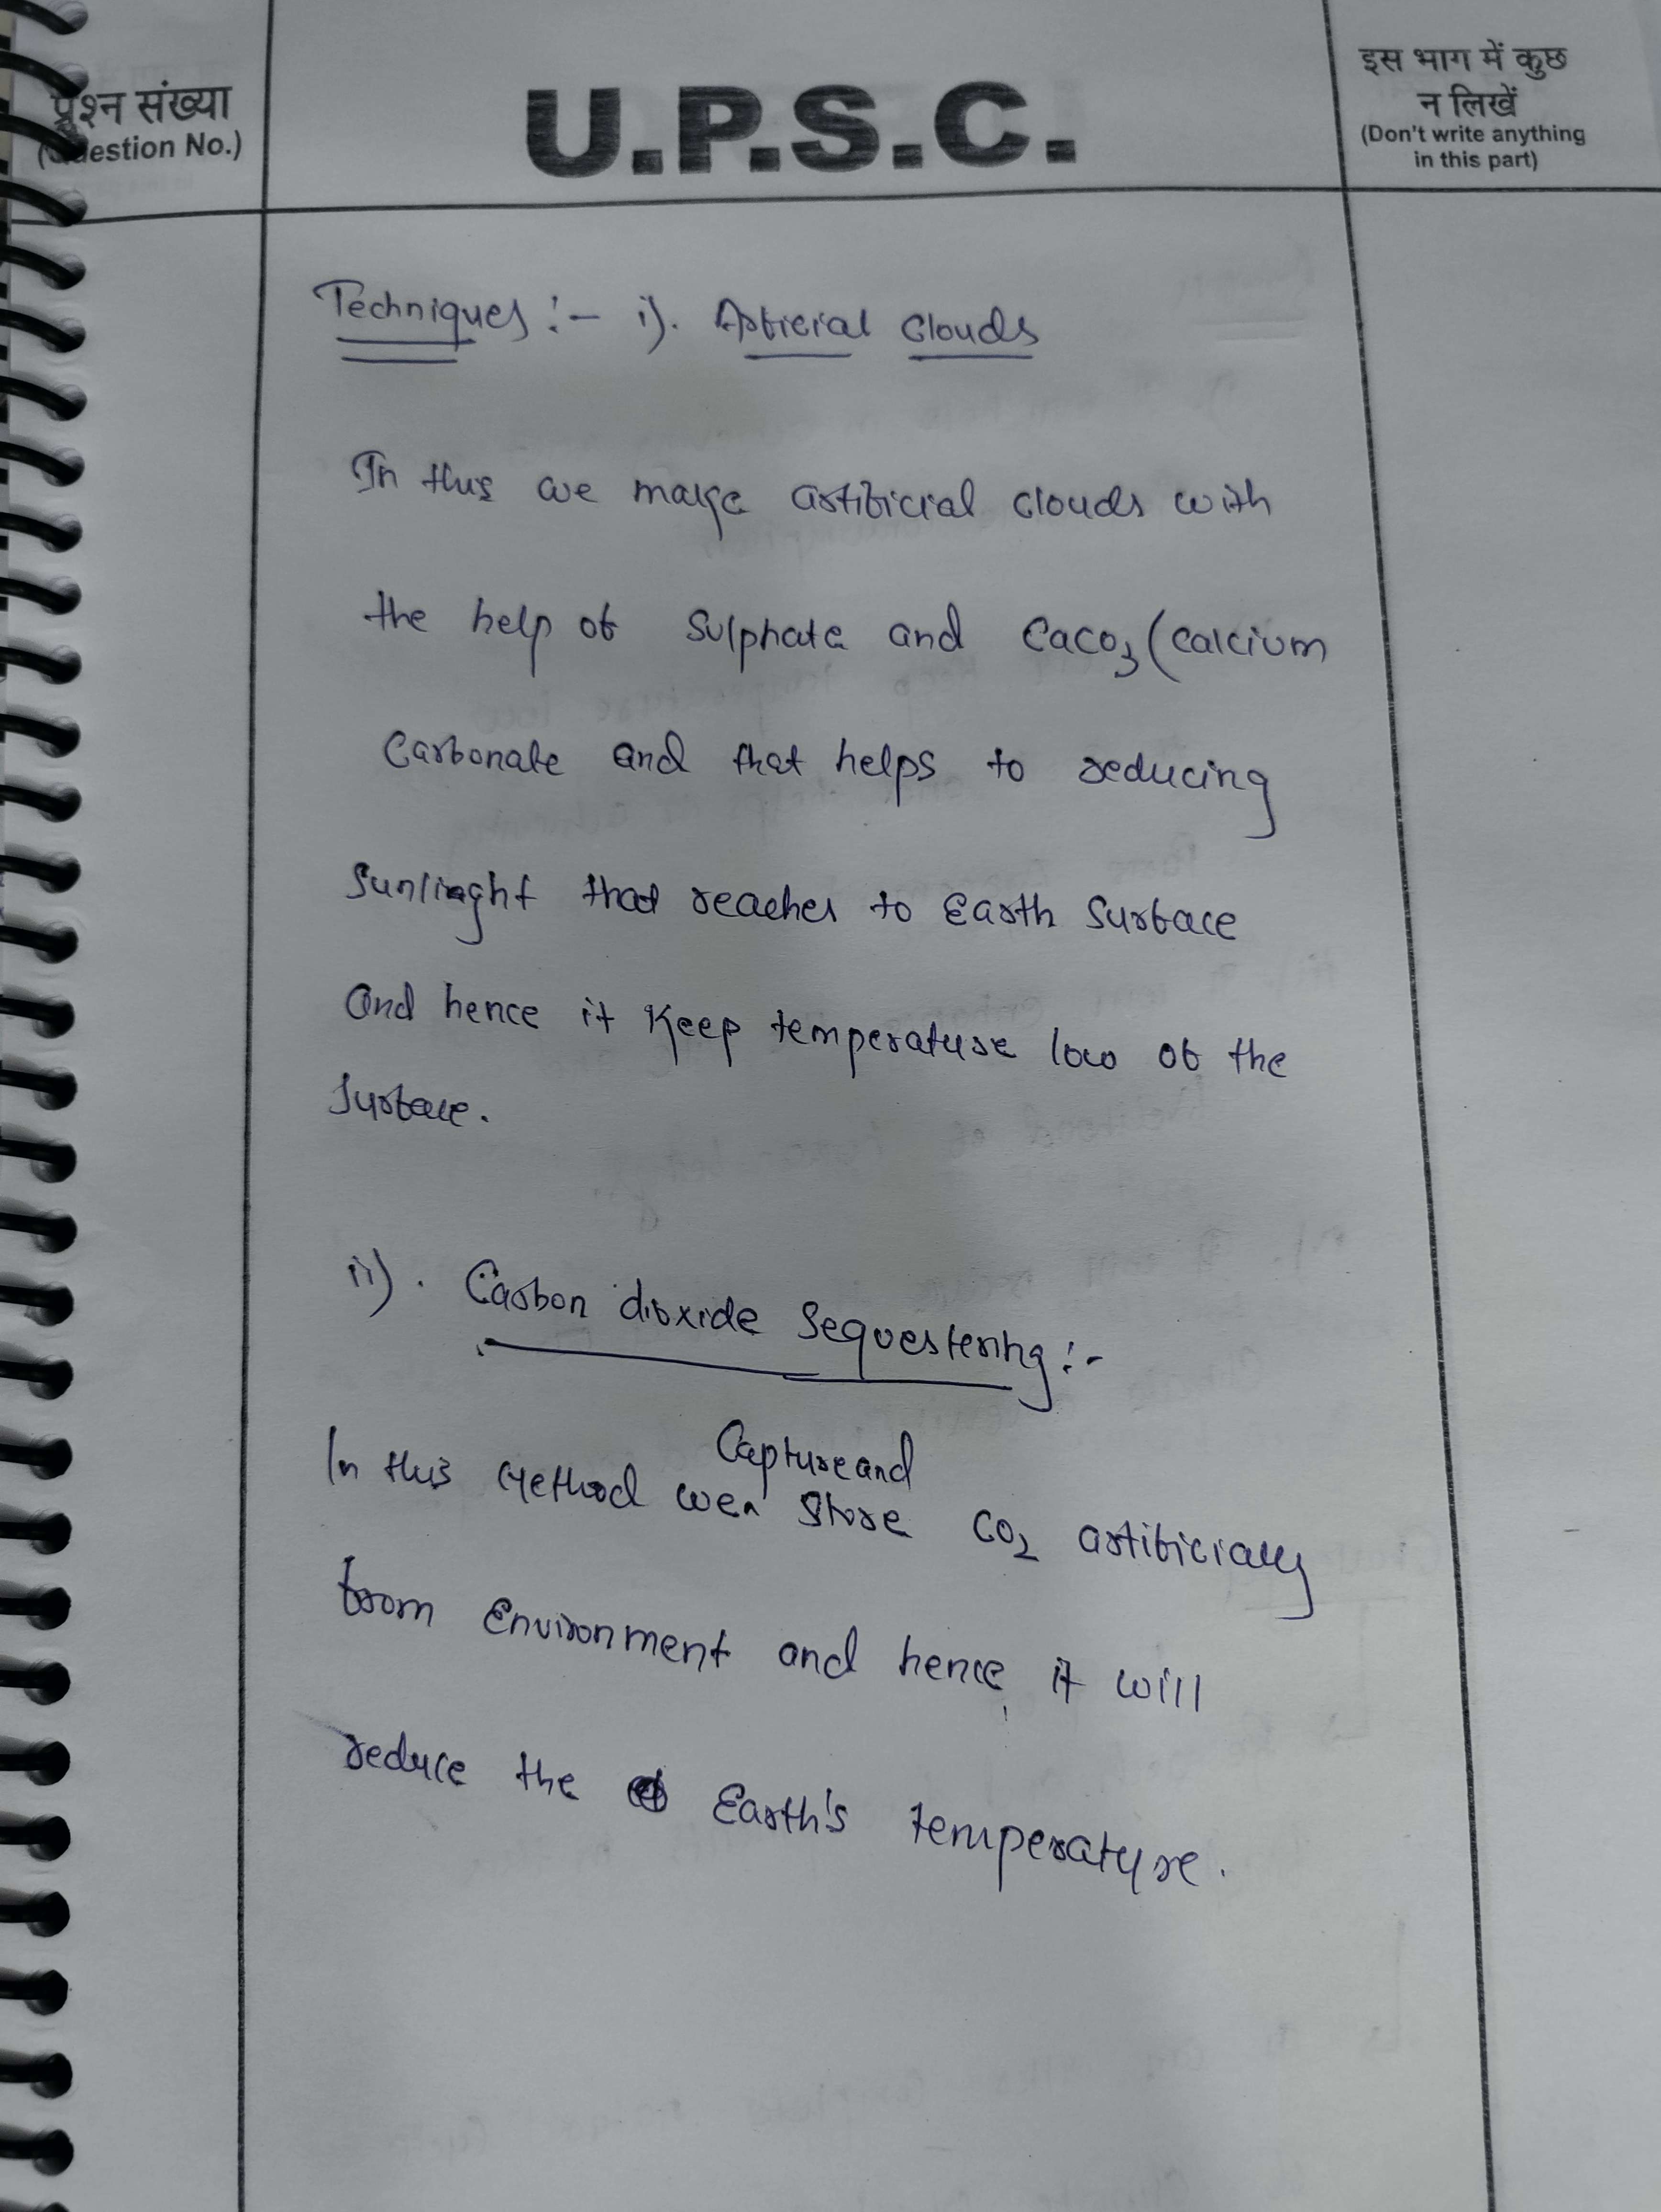 प्रश्न संख्या
(Question No.)
U.P.S.C.
इस भाग में कुछ
न लिखें
(Don't write anything
in this part)
Techniques :- i). Artficial Clouds
In this we make artificial clouds with
the help of Sulphate and CaCO3 (Calcium
Carbonate and that helps to reducing
Sunlinght that reaches to Earth Surface
and hence it Keep temperature low of the
Surface.
ii). Carbon dioxide Sequestering :-
Capture and
In this Method we store CO2 artificially
from Environment and hence it will
reduce the Earth's temperature.